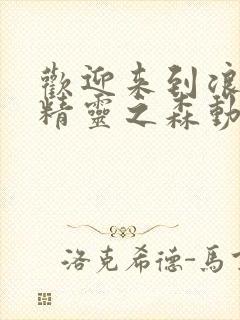 歡迎来到浪
精靈之森動
洛克希德-馬丁